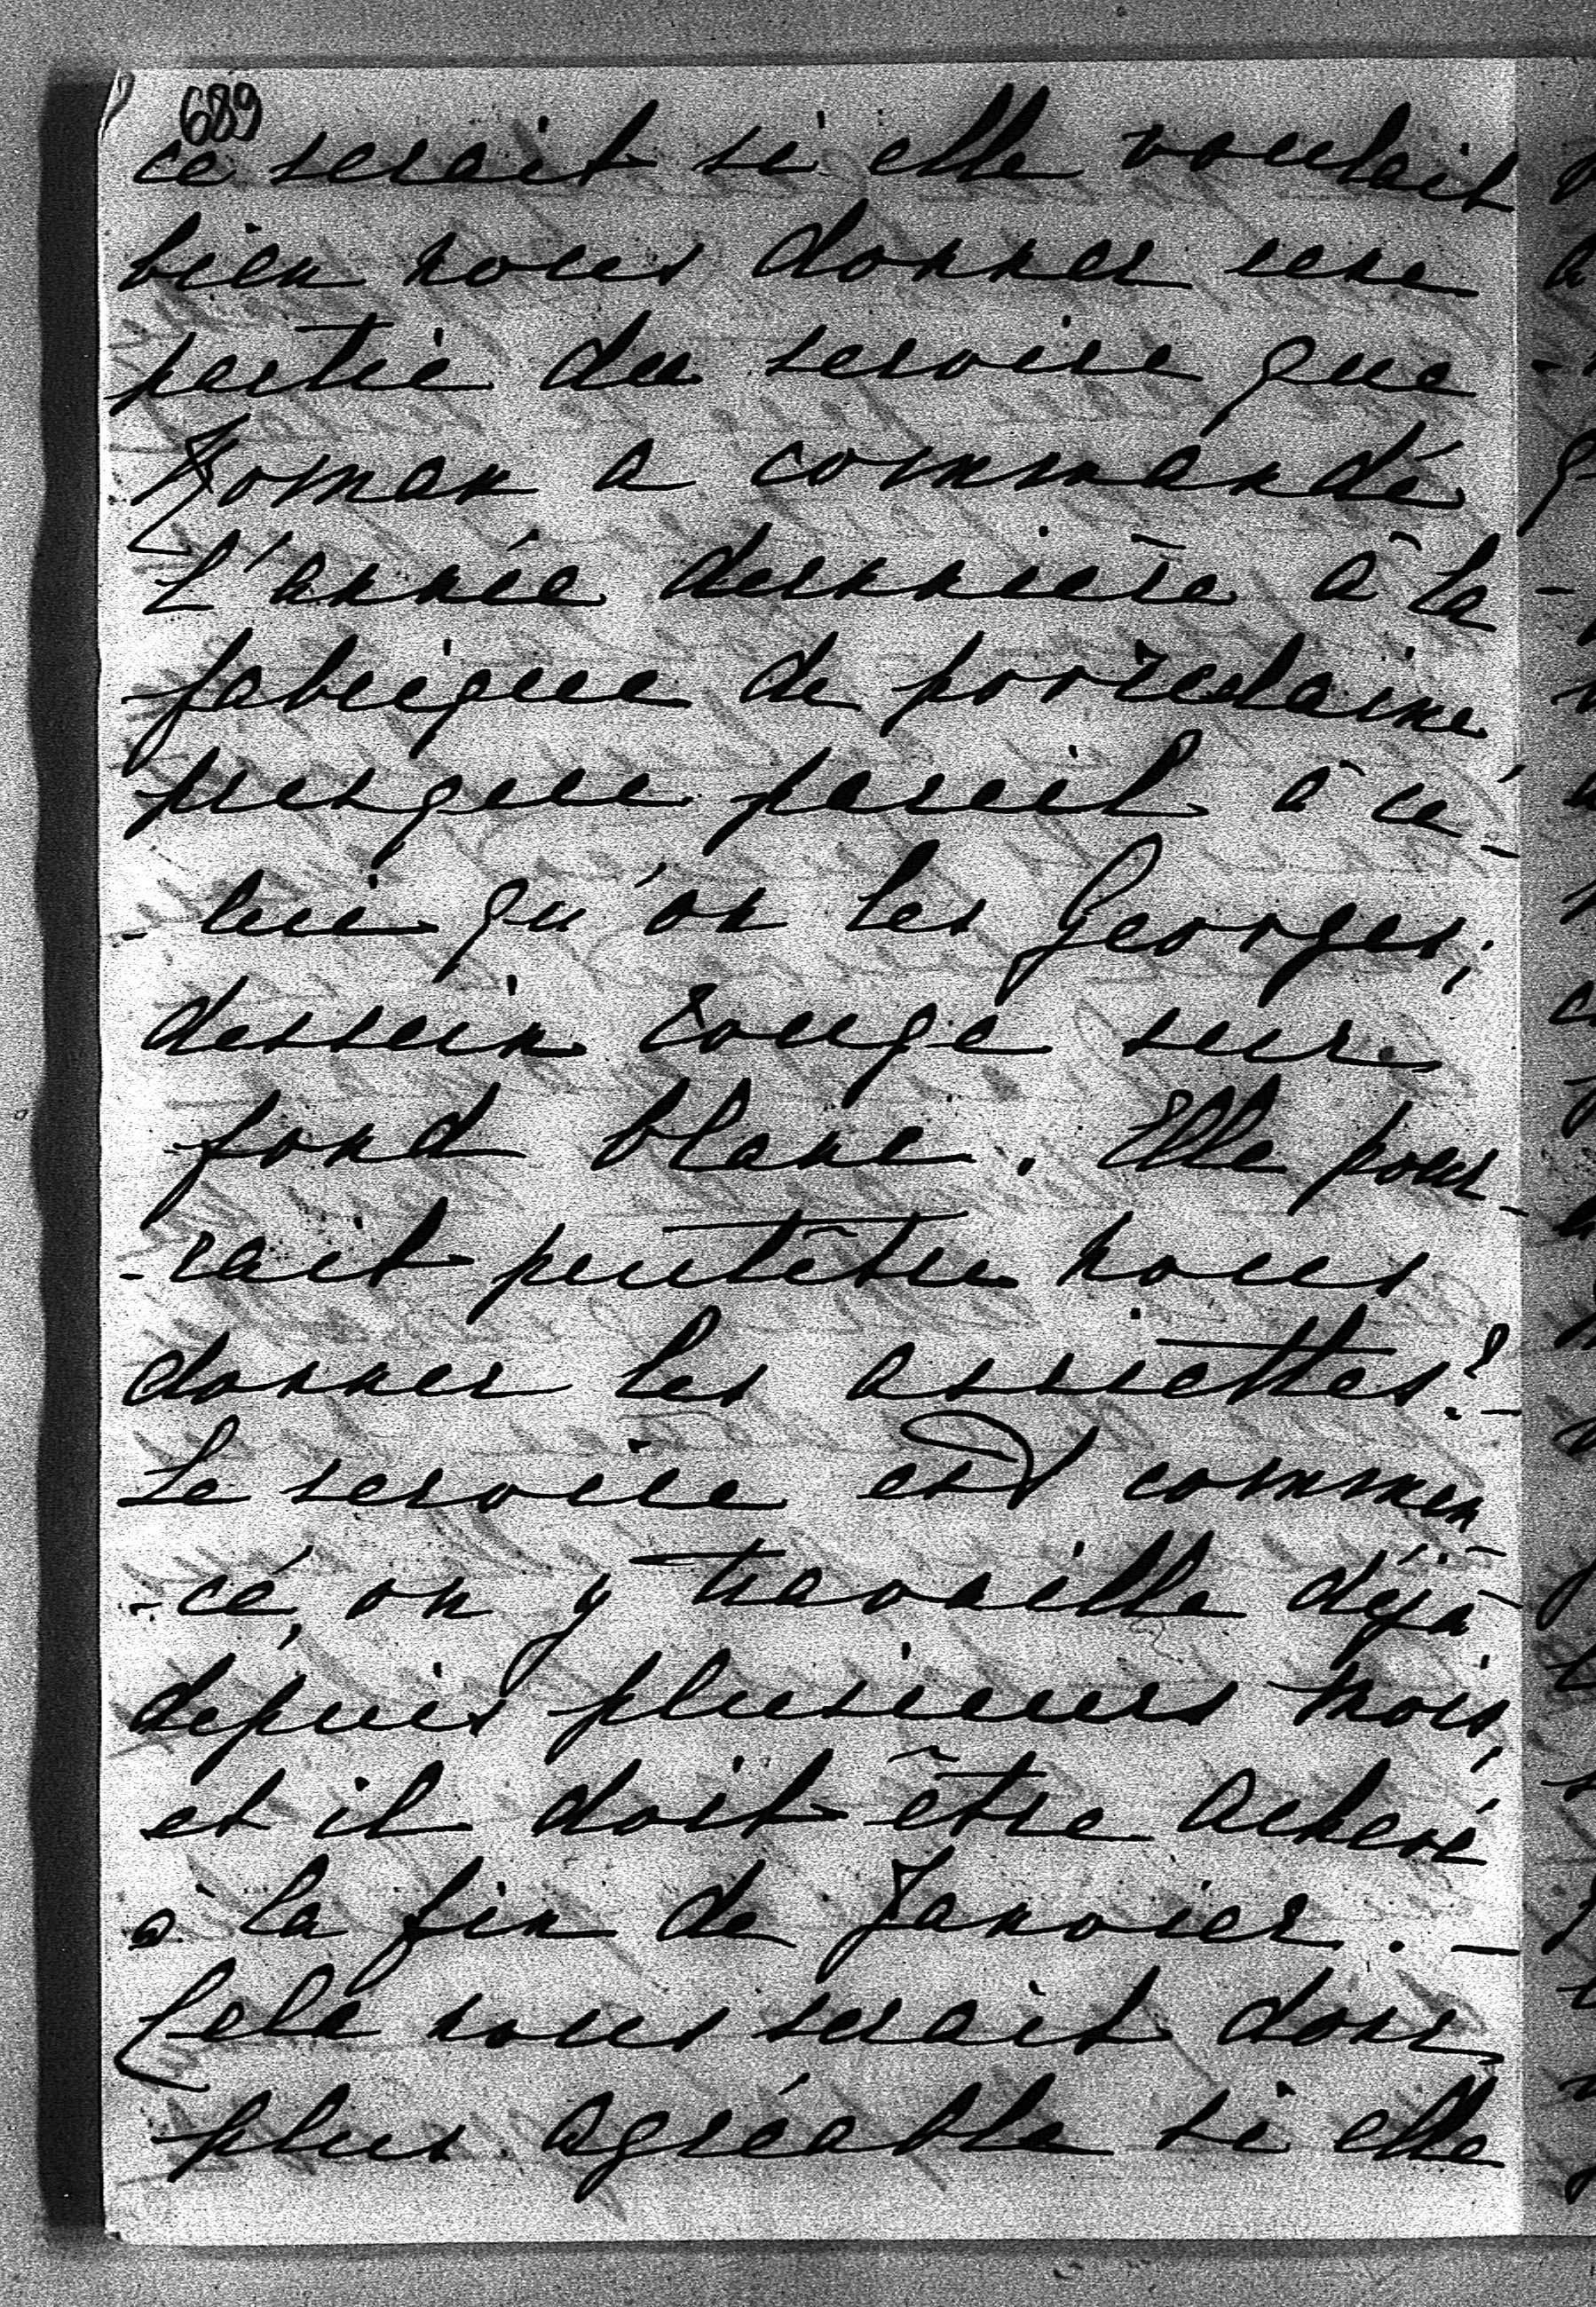 689
ce serait si elle voulait
bien nous donner une
partie du service que
Roman a commandé
l'année dernnière à la
fabrique de porzelaine
presque pareil à ce-
-lui qu'on les Georges;
dessein rouge sur
fond blanc. Elle pour-
-rait peutêtre nous
donner les assiettes? -
Le service est commen-
-cé, on y travaille déjà
depuis plusieurs mois,
et il doit être achevé
à la fin de Janvier. -
Cela nous serait donc
plus agréable si elle